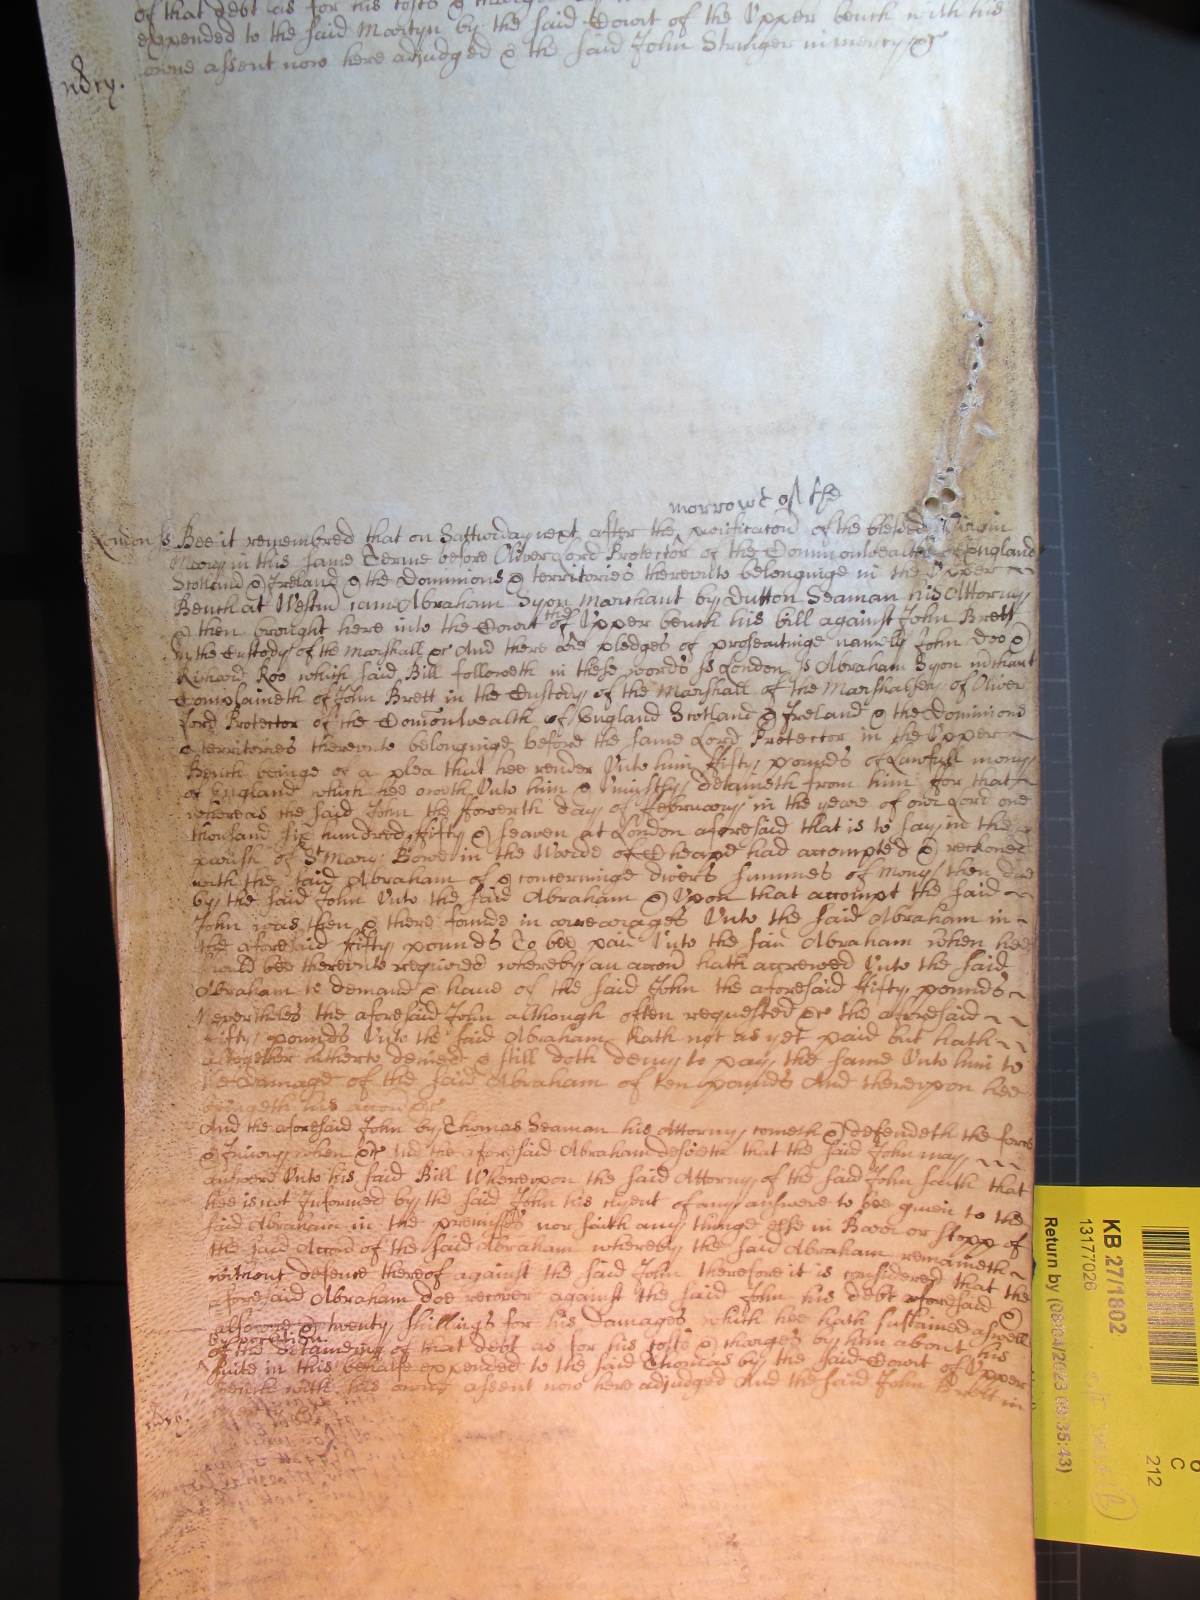 of that debt as for his costs & charges
expended to the said Martyn by the said Court of the Upper bench with his
owne assent now here adjudged & the said John Struger in mercy &c
morrowe of the
London ss Bee it remembred that on Satturday next after the purificacon of the blessed Virgin
Mary in this same Terme before Oliver Lord Protector of the Commonwealth of England
Scotland & Ireland & the Dominions & territories therevnto belonginge in the Vpper
Bench at Westm came Abraham Syon Marchant by Dutton Seaman his Attorny
& then brought here into the Court of the Vpper bench his bill against John Brett
in the Custody of the Marshall &c And there are pledges of prosecutinge namely John Doe &
Richard Roe which said Bill followeth in these words ss London ss Abraham Syon mchant
Complaineth of John Brett in the Custody of the Marshall of the Marshalsey of Oliver
Lord Protector of the Comonwealth of England Scotland & Ireland & the Dominions
& territories therevnto belonginge before the same Lord Protector in the Vpper
Bench beinge of a plea that hee render Vnto him fifty pounds of Lawfull mony
of England which hee oweth Vnto him & Vniustly detaineth from him for that
whereas the said John the fowerth day of February in the yeare of our Lord one
thousand six hundred fifty & seaven at London aforesaid that is to say in the
parish of St Mary Bowe in the Warde of Cheape had accompted & reckoned
with the said Abraham of & concerninge divers summes of mony then due
by the said John Vnto the said Abraham & Vpon that accompt the said
John was then & there founde in arrerages Vnto the said Abraham in
the aforesaid fifty pounds To bee paid Vnto the said Abraham when hee
should bee therevnto required whereby an accon hath accrewed Vnto the said
Abraham to demand & have of the said John the aforesaid fifty pounds
Neverthelesse the aforesaid John although often requested &c the aforesaid
fifty pounds Vnto the said Abraham hath not as yet paid but hath
altogether hitherto denied & still doth deny to pay the same Vnto him to
the damage of the said Abraham of ten pounds And therevpon hee
bringeth his accon &c
And the aforesaid John by Thomas Seaman his Attorny cometh & defendeth the force
& Iniury when &c And the aforesaid Abraham desireth that the said John may
answere Vnto his said Bill Wherevpon the said Attorny of the said John saith that
hee is not Informed by the said John his clyent of any answere to bee given to the
said Abraham in the premisses nor saith any thinge else in Barr or stopp of
the said Accon of the said Abraham whereby the said Abraham remaineth
without defence thereof against the said John therefore it is considered that the
aforesaid Abraham doe recover against the said John his debt aforesaid &
alsoe twenty shillings for his damages which hee hath sustained aswell
by occasion
of the detaineing of that debt as for his costs & charges by him about his
suite in this behalfe expended to the said Thomas by the said Court of Vpper
bench with his owne assent now here adjudged And the said John Brett in
KB 27/1802
13177026
Return by (08/04/2023 09:35:43)
C
212